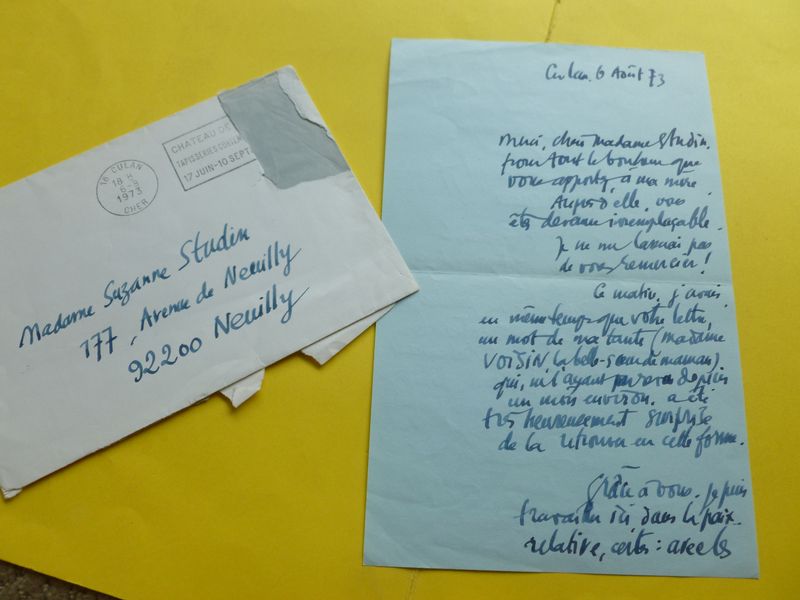 18 CULAN
18 H
6-8
1973
CHER
CHATEAU DE
TAPISSERIES CONTEM
17 JUIN-10 SEPT
Madame Suzanne Studin
177, Avenue de Neuilly
92200 Neuilly
Culan. 6 Août 73
Merci, chère Madame Studin,
pour tout le bonheur que
vous apportez à ma mère.
Auprès d'elle, vous
êtes devenue irremplaçable.
Je ne me lasserai pas
de vous remercier!
Ce matin, j'avais
en même temps que votre lettre,
un mot de ma tante (madame
VOISIN la belle-soeur de maman)
qui, ne l'ayant pas vue depuis
un mois environ, a été
très heureusement surprise
de la retrouver en cette forme.
Grâce à vous, je puis
travailler ici dans la paix.
relative, certes: avec les